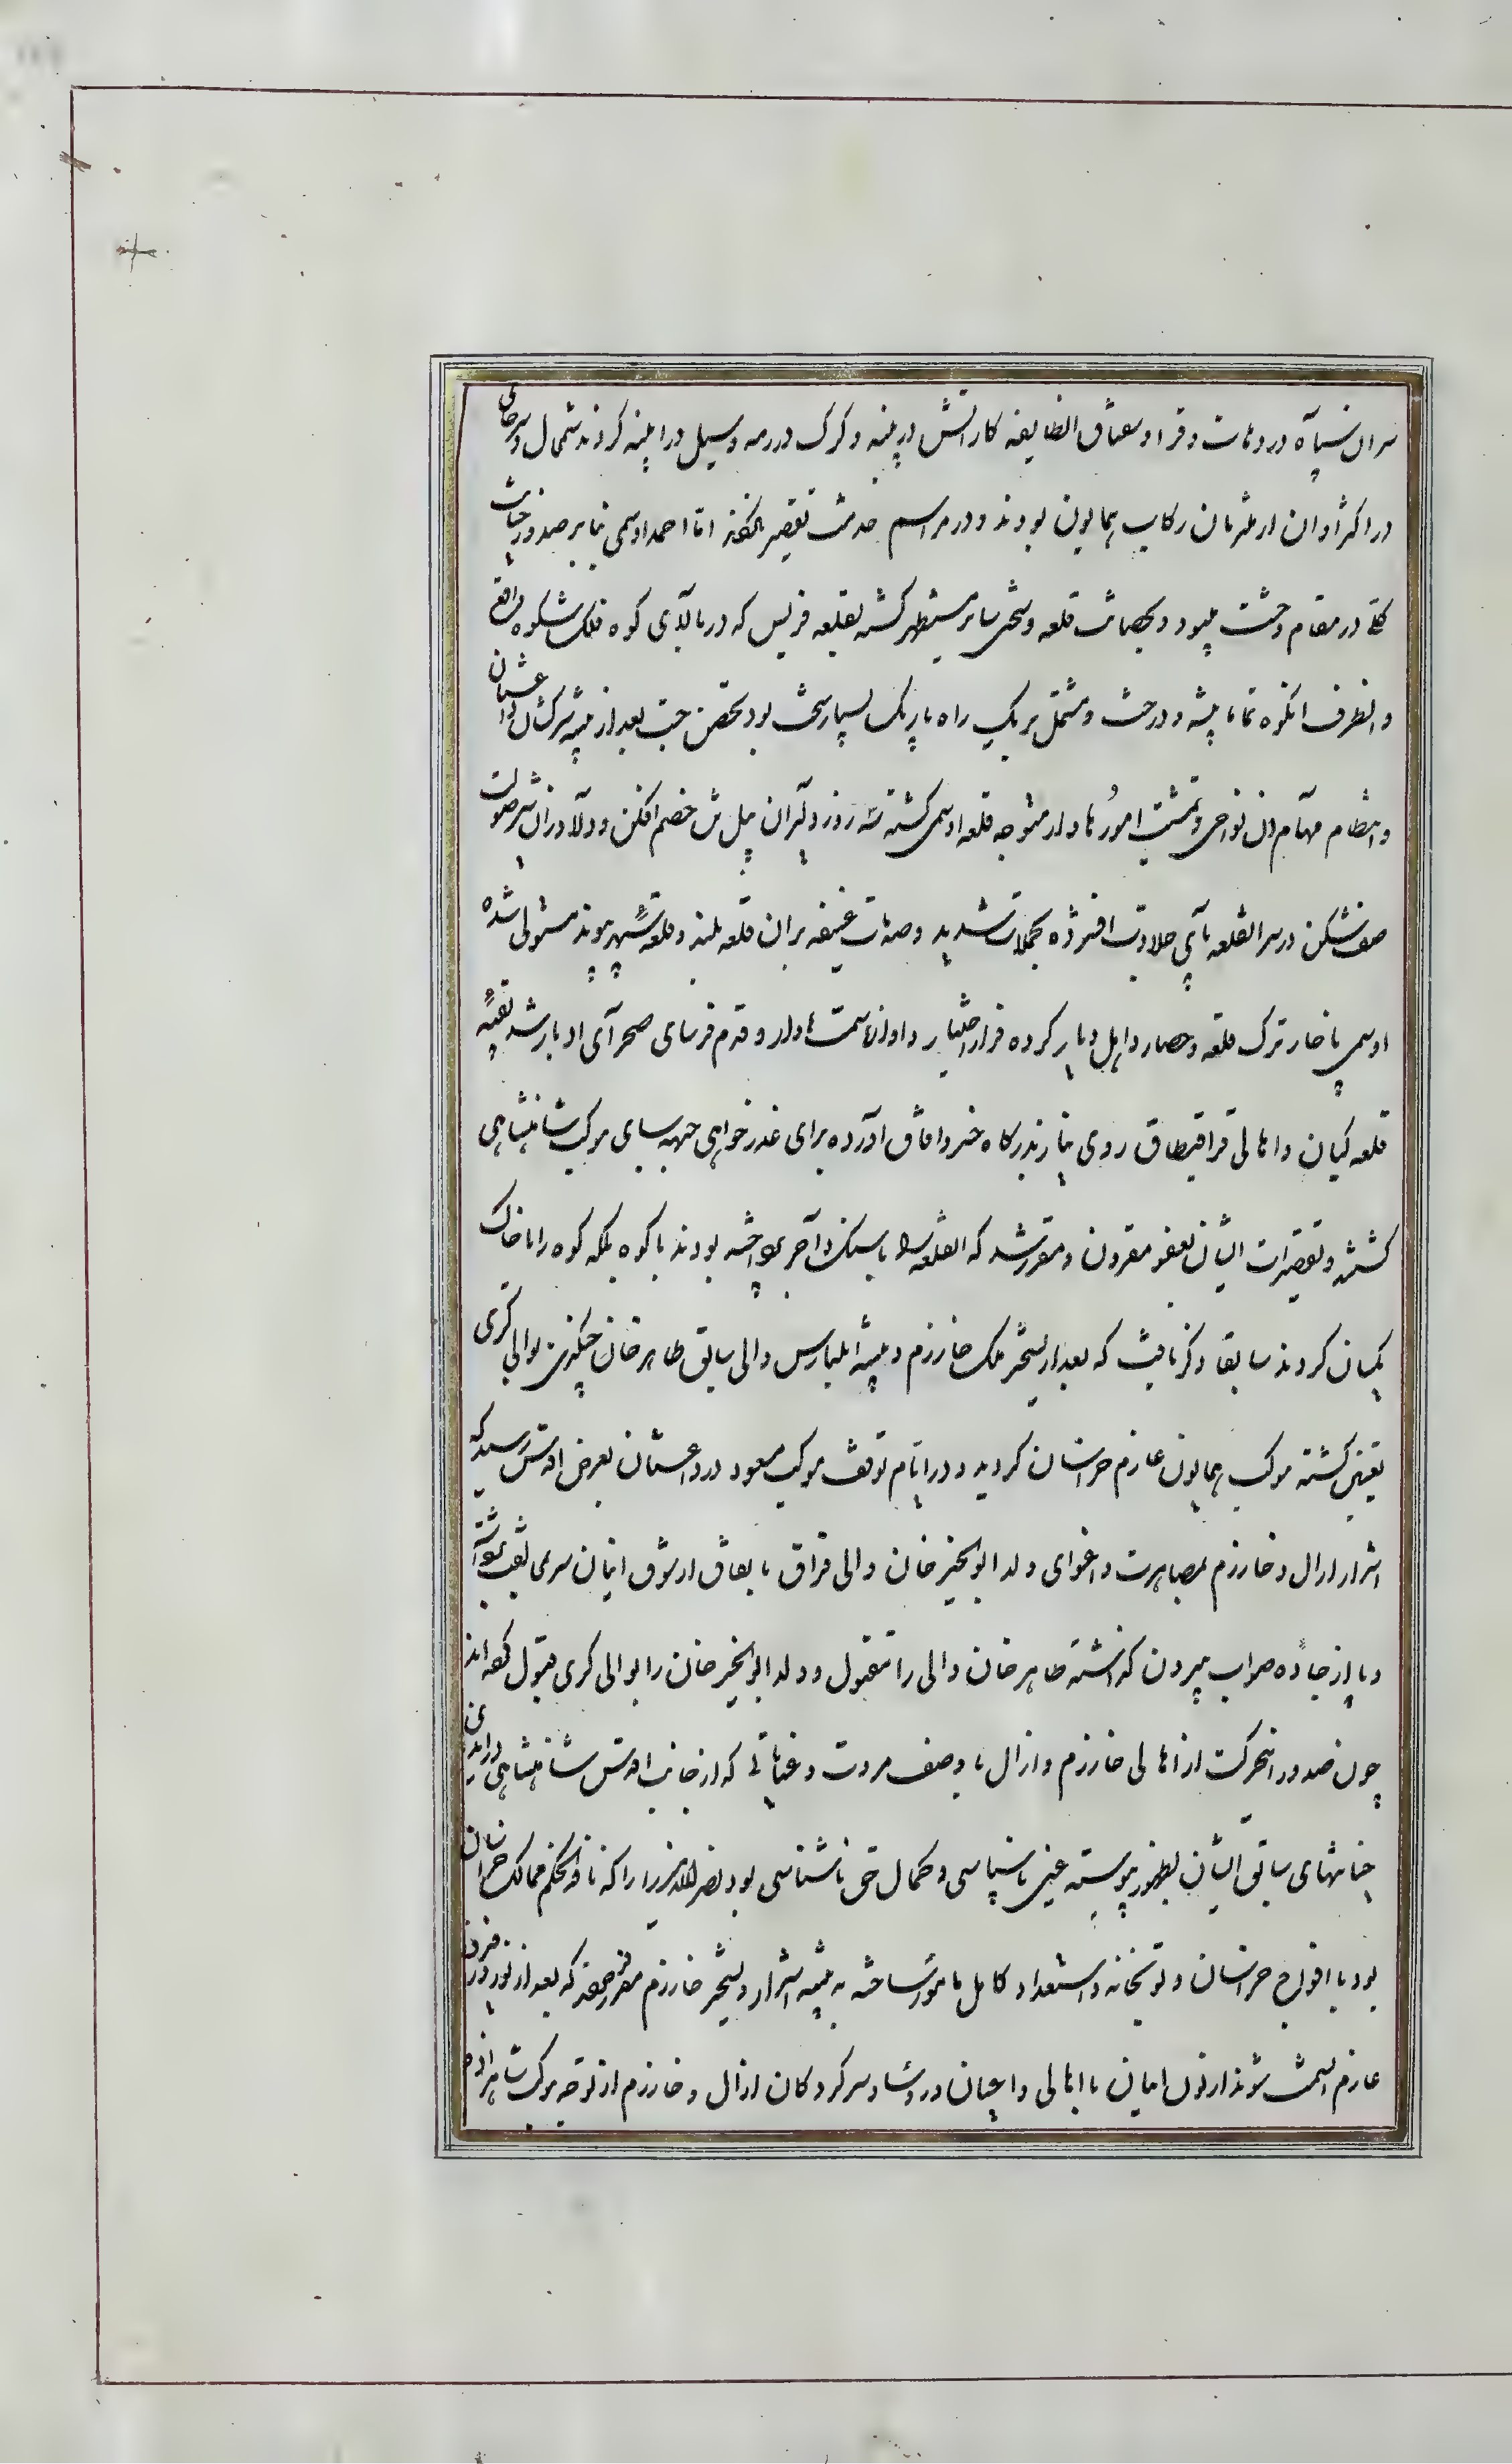 سران سپاه در دهات و قرا و سقناق انطایفه کار اتش در پنبه و کرک در رمه و سیل در ابنیه کردند شمخال و سرخای
در اکثر اوان از ملتزمان رکاب همایون بودند و در مراسم خدمت تقصیر نمیکردند اما احمد اوسمی بنا بر صدور خیانت
کلی در مقام وحشت میبود و بحصانت قلعه و سختی سایر مستظهر کشته بقلعه قریش که در بالای کوه فلک شکوه واقع
و انطرف انکوه تماما بیشه و درخت و مشتمل بر یک راه باریک بسیار سخت بود تحصن جست بعد از تنبیه سرکشان داغستان
و انتظام مهام ان نواحی و تمشیت امور اوار متوجه قلعه اوسمی کشته سه روز دلیران پیل تن خصم افکن و دلاوران شیر صولت
صف شکن در سر انقلعه پای جلادت افشرده بحملات شدید و صدمات عنیفه بران قلعه بلند و قلعه سپهر پیوند مستولی شده
اوسمی ناچار ترک قلعه و حصار و اهل و دیار کرده فرار اختیار و اواره سمت اوار و قدم فرسای صحرای ادبار شد بقیه
قلعه کیان و اهالی قراقیطاق روی نیاز بدرکاه خسرو افاق اورده برای عذر خواهی جبهه سای موکب شاهنشاهی
کشتند و تقصیرات ایشان بعفو مقرون و مقرر شد که انقلعه را با سنک و اجر پرداخته بودند با کوه بلکه کوه را با خاک
یکسان کردند سابقا ذکر یافت که بعد از تسخیر ملک خوارزم و تنبیه ایلبارس والی سابق طاهر خان چنکیزی بوالی کری
تعیین کشته موکب همایون عازم خراسان کردید و در ایام توقف موکب مسعود در داغستان بعرض اقدس رسید که
اشرار ارال و خوارزم بمصاهرت و اغوای ولد ابوالخیر خان والی قزاق باتفاق ارتوق ایناق سر بی ثباتی برداشته
و پا از جاده صواب بیرون کذاشته طاهر خان والی را مقتول و ولد ابوالخیر خان را بوالی کری قبول کرده اند
چون صدور انحرکت از اهالی خوارزم و ارال با وصف مروت و عنایاتی که از جانب اقدس شاهنشاهی در ازای
خیانتهای سابق ایشان بظهور پیوسته عین ناسپاسی و کمال حق ناشناسی بود نصرالله میرزا را که نافذ الحکم ممالک خراسان
بود با افواج خراسان و توپخانه و استعداد کامل مامور ساخته به تنبیه اشرار و تسخیر خوارزم مقرر فرمودند که بعد از نوروز فیروز
عازم انسمت شوند ارتوق ایناق با اهالی و اعیان و روسا و سرکردکان ارال و خوارزم از توجه موکب شاهزاده